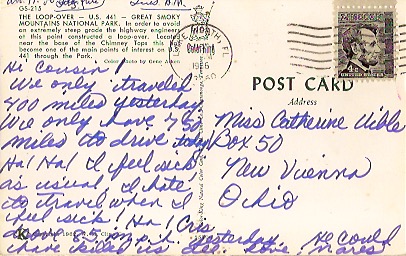 GS-215
THE LOOP-OVER - U.S. 441 - GREAT SMOKY
MOUNTAINS NATIONAL PARK. In order to avoid
an extremely steep grade the highway engineers
on this point constructed a loop-over. Located
near the base of the Chimney Tops this has
become one of the main points of interest on U.S.
441 through the Park.
Color Photo by Gene Aiken
Hi Cousin!
We only traveled
400 miles yesterday
We only have 750
miles to drive today
Ha! Ha! I feel sick
as usual, I hate
to travel when I
feel sick! Ha! Cris
yesterday. He could
have killed us all. Love,
POST CARD
Address
Miss Catherine Uible
Box 50
New Vienna
Ohio
UNITED STATES